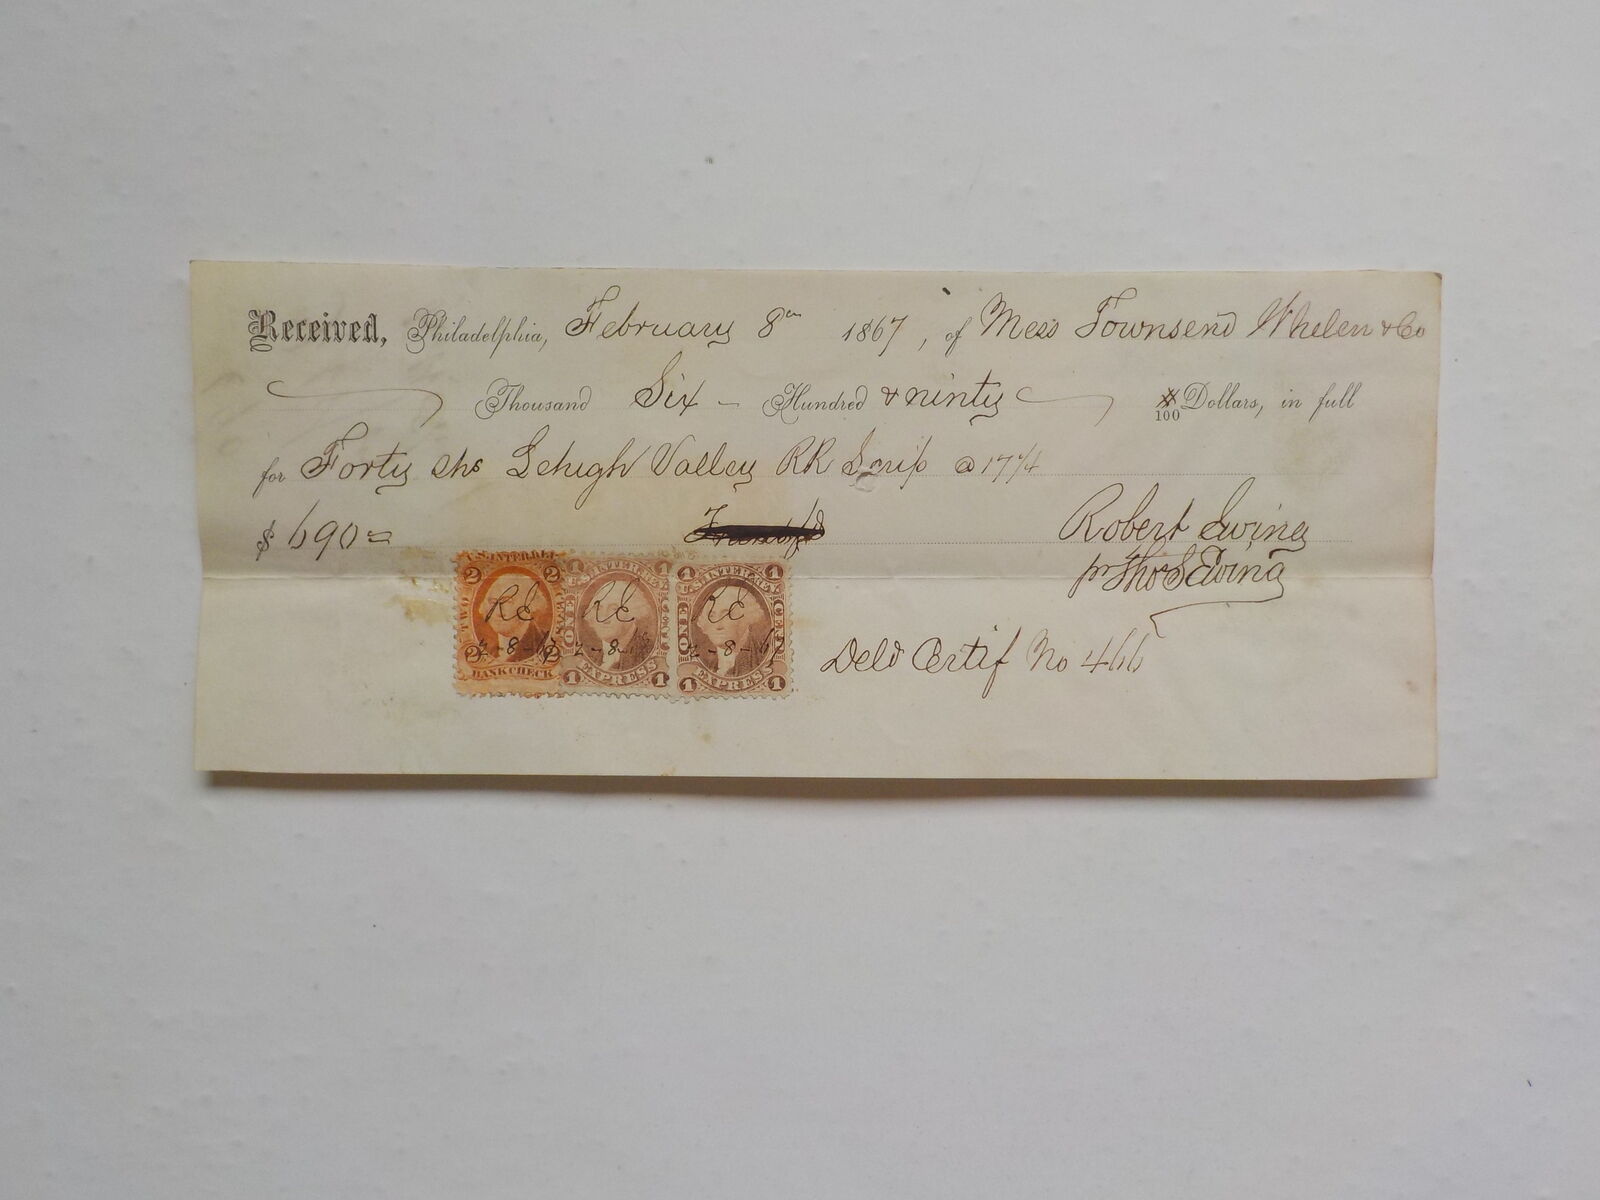 Received, Philadelphia, February 8th 1867, of Mess Townsend Whelen & Co
Thousand Six Hundred & ninty /100 Dollars, in full
for Forty shs Lehigh Valley RR Scrip @ 17 1/4
$ 690=
Robert Ewing
pr Thos S Ewing
U.S. INTER. REV.
2 2
TWO CENTS
RE RE RE
2-8-67 2-8-67 2-8-67
2 2
BANK CHECK
1 1
U.S. INTER. REV.
ONE CENT
EXPRESS
1 1
1 1
U.S. INTER. REV.
ONE CENT
EXPRESS
1 1
Deld Certif No 466